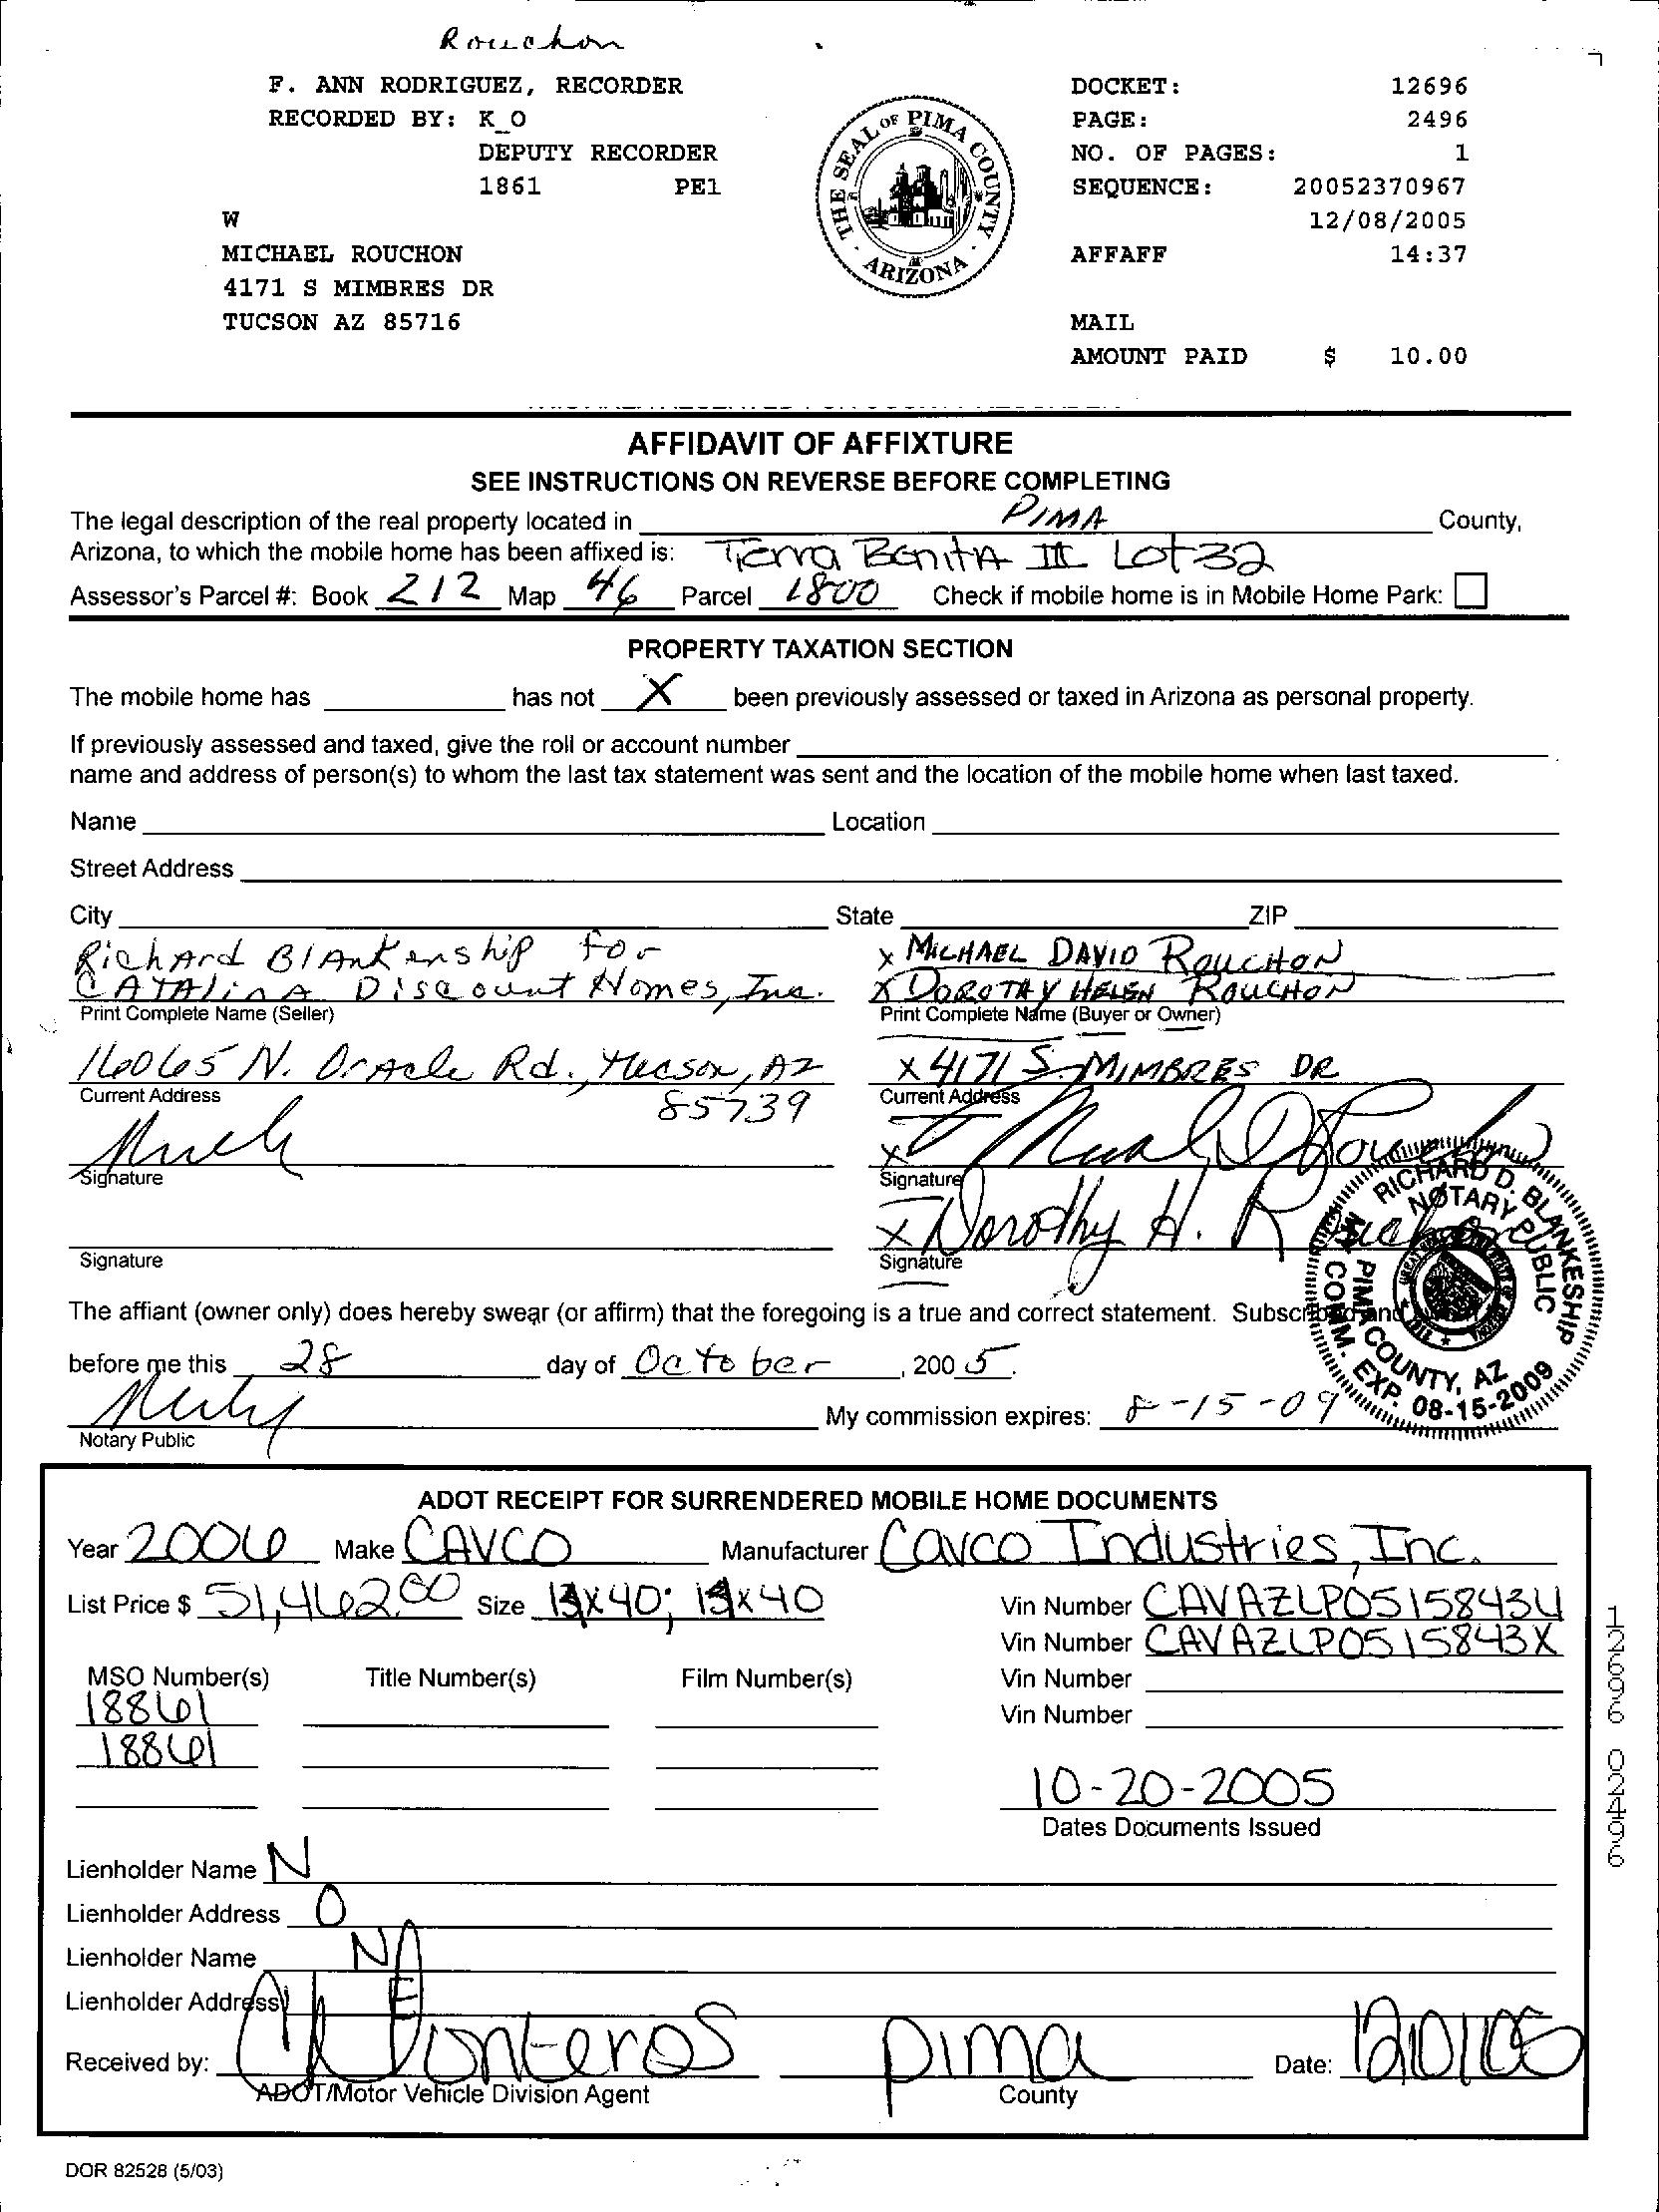 Rouchon
F. ANN RODRIGUEZ, RECORDER
RECORDED BY: K_O
DEPUTY RECORDER
1861 PE1
W
MICHAEL ROUCHON
4171 S MIMBRES DR
TUCSON AZ 85716
THE SEAL OF PIMA COUNTY
ARIZONA
DOCKET: 12696
PAGE: 2496
NO. OF PAGES: 1
SEQUENCE: 20052370967
12/08/2005
AFFAFF 14:37
MAIL
AMOUNT PAID $ 10.00
AFFIDAVIT OF AFFIXTURE
SEE INSTRUCTIONS ON REVERSE BEFORE COMPLETING
The legal description of the real property located in PIMA County,
Arizona, to which the mobile home has been affixed is: Tierra Bonita III Lot 32
Assessor's Parcel #: Book 212 Map 46 Parcel 1800 Check if mobile home is in Mobile Home Park:
PROPERTY TAXATION SECTION
The mobile home has has not X been previously assessed or taxed in Arizona as personal property.
If previously assessed and taxed, give the roll or account number
name and address of person(s) to whom the last tax statement was sent and the location of the mobile home when last taxed.
Name Location
Street Address
City State ZIP
Richard Blankenship for X MICHAEL DAVID ROUCHON
CATALINA Discount Homes, Inc. X DOROTHY HELEN ROUCHON
Print Complete Name (Seller) Print Complete Name (Buyer or Owner)
16065 N. Oracle Rd., Tucson, AZ X 4171 S. MIMBRES DR
Current Address 85739 Current Address
X
Signature Signature
X Dorothy H. Rouchon
Signature Signature
RICHARD D. BLANKESHIP
NOTARY PUBLIC
PIMA COUNTY, AZ
COMM. EXP. 08-15-2009
The affiant (owner only) does hereby swear (or affirm) that the foregoing is a true and correct statement. Subscribed and
before me this 28 day of October, 2005.
My commission expires: 8-15-09
Notary Public
ADOT RECEIPT FOR SURRENDERED MOBILE HOME DOCUMENTS
Year 2006 Make CAVCO Manufacturer Cavco Industries, Inc.
List Price $ 51,462.00 Size x40; x40 Vin Number CAVAZLP0515843U
Vin Number CAVAZLP0515843X
MSO Number(s) Title Number(s) Film Number(s) Vin Number
18861 Vin Number
18861
10-20-2005
Dates Documents Issued
Lienholder Name N
Lienholder Address O
Lienholder Name N
Lienholder Address E
Received by: Pima Date:
ADOT/Motor Vehicle Division Agent County
12696 02496
DOR 82528 (5/03)